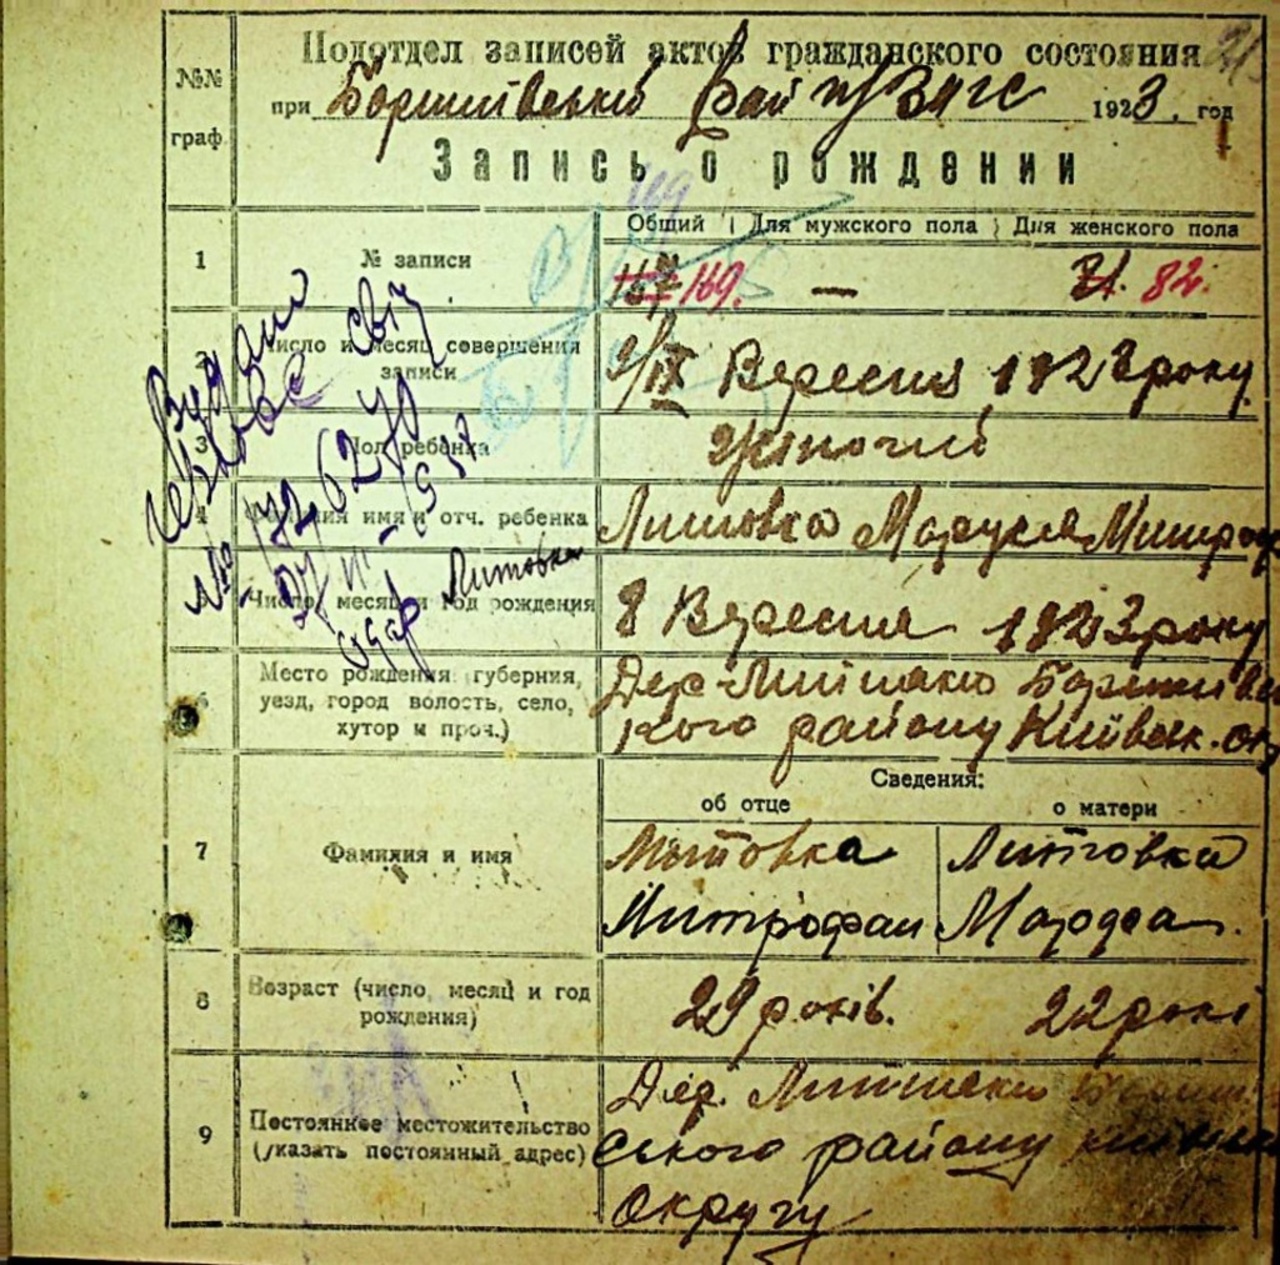 Подотдел записей актов гражданского состояния
№№
граф.
при Боришпівський Рай ЗАГС 1923. год
Запись о рождении
Общий Для мужского пола Для женского пола
1 № записи 169. — 82.
169
2 Число и месяц совершения
записи
9/IX Вересня 1923 року
3 Пол ребенка Жіночий
4 Фамилия имя и отч. ребенка Литовка Митроф
5 Число, месяц и год рождения 8 Вересня 1923 року
6 Место рождения губерния,
уезд, город волость, село,
хутор и проч.)
Дер.
кого району Київськ. окр
Сведения:
об отце о матери
7 Фамилия и имя Литовка Литовка
Митрофан
8 Возраст (число, месяц и год
рождения)
29 років. 22 роки
9 Постоянное местожительство
(указать постоянный адрес)
Дер.
ського району
округу
Видано
свід
№
1957
Литовка